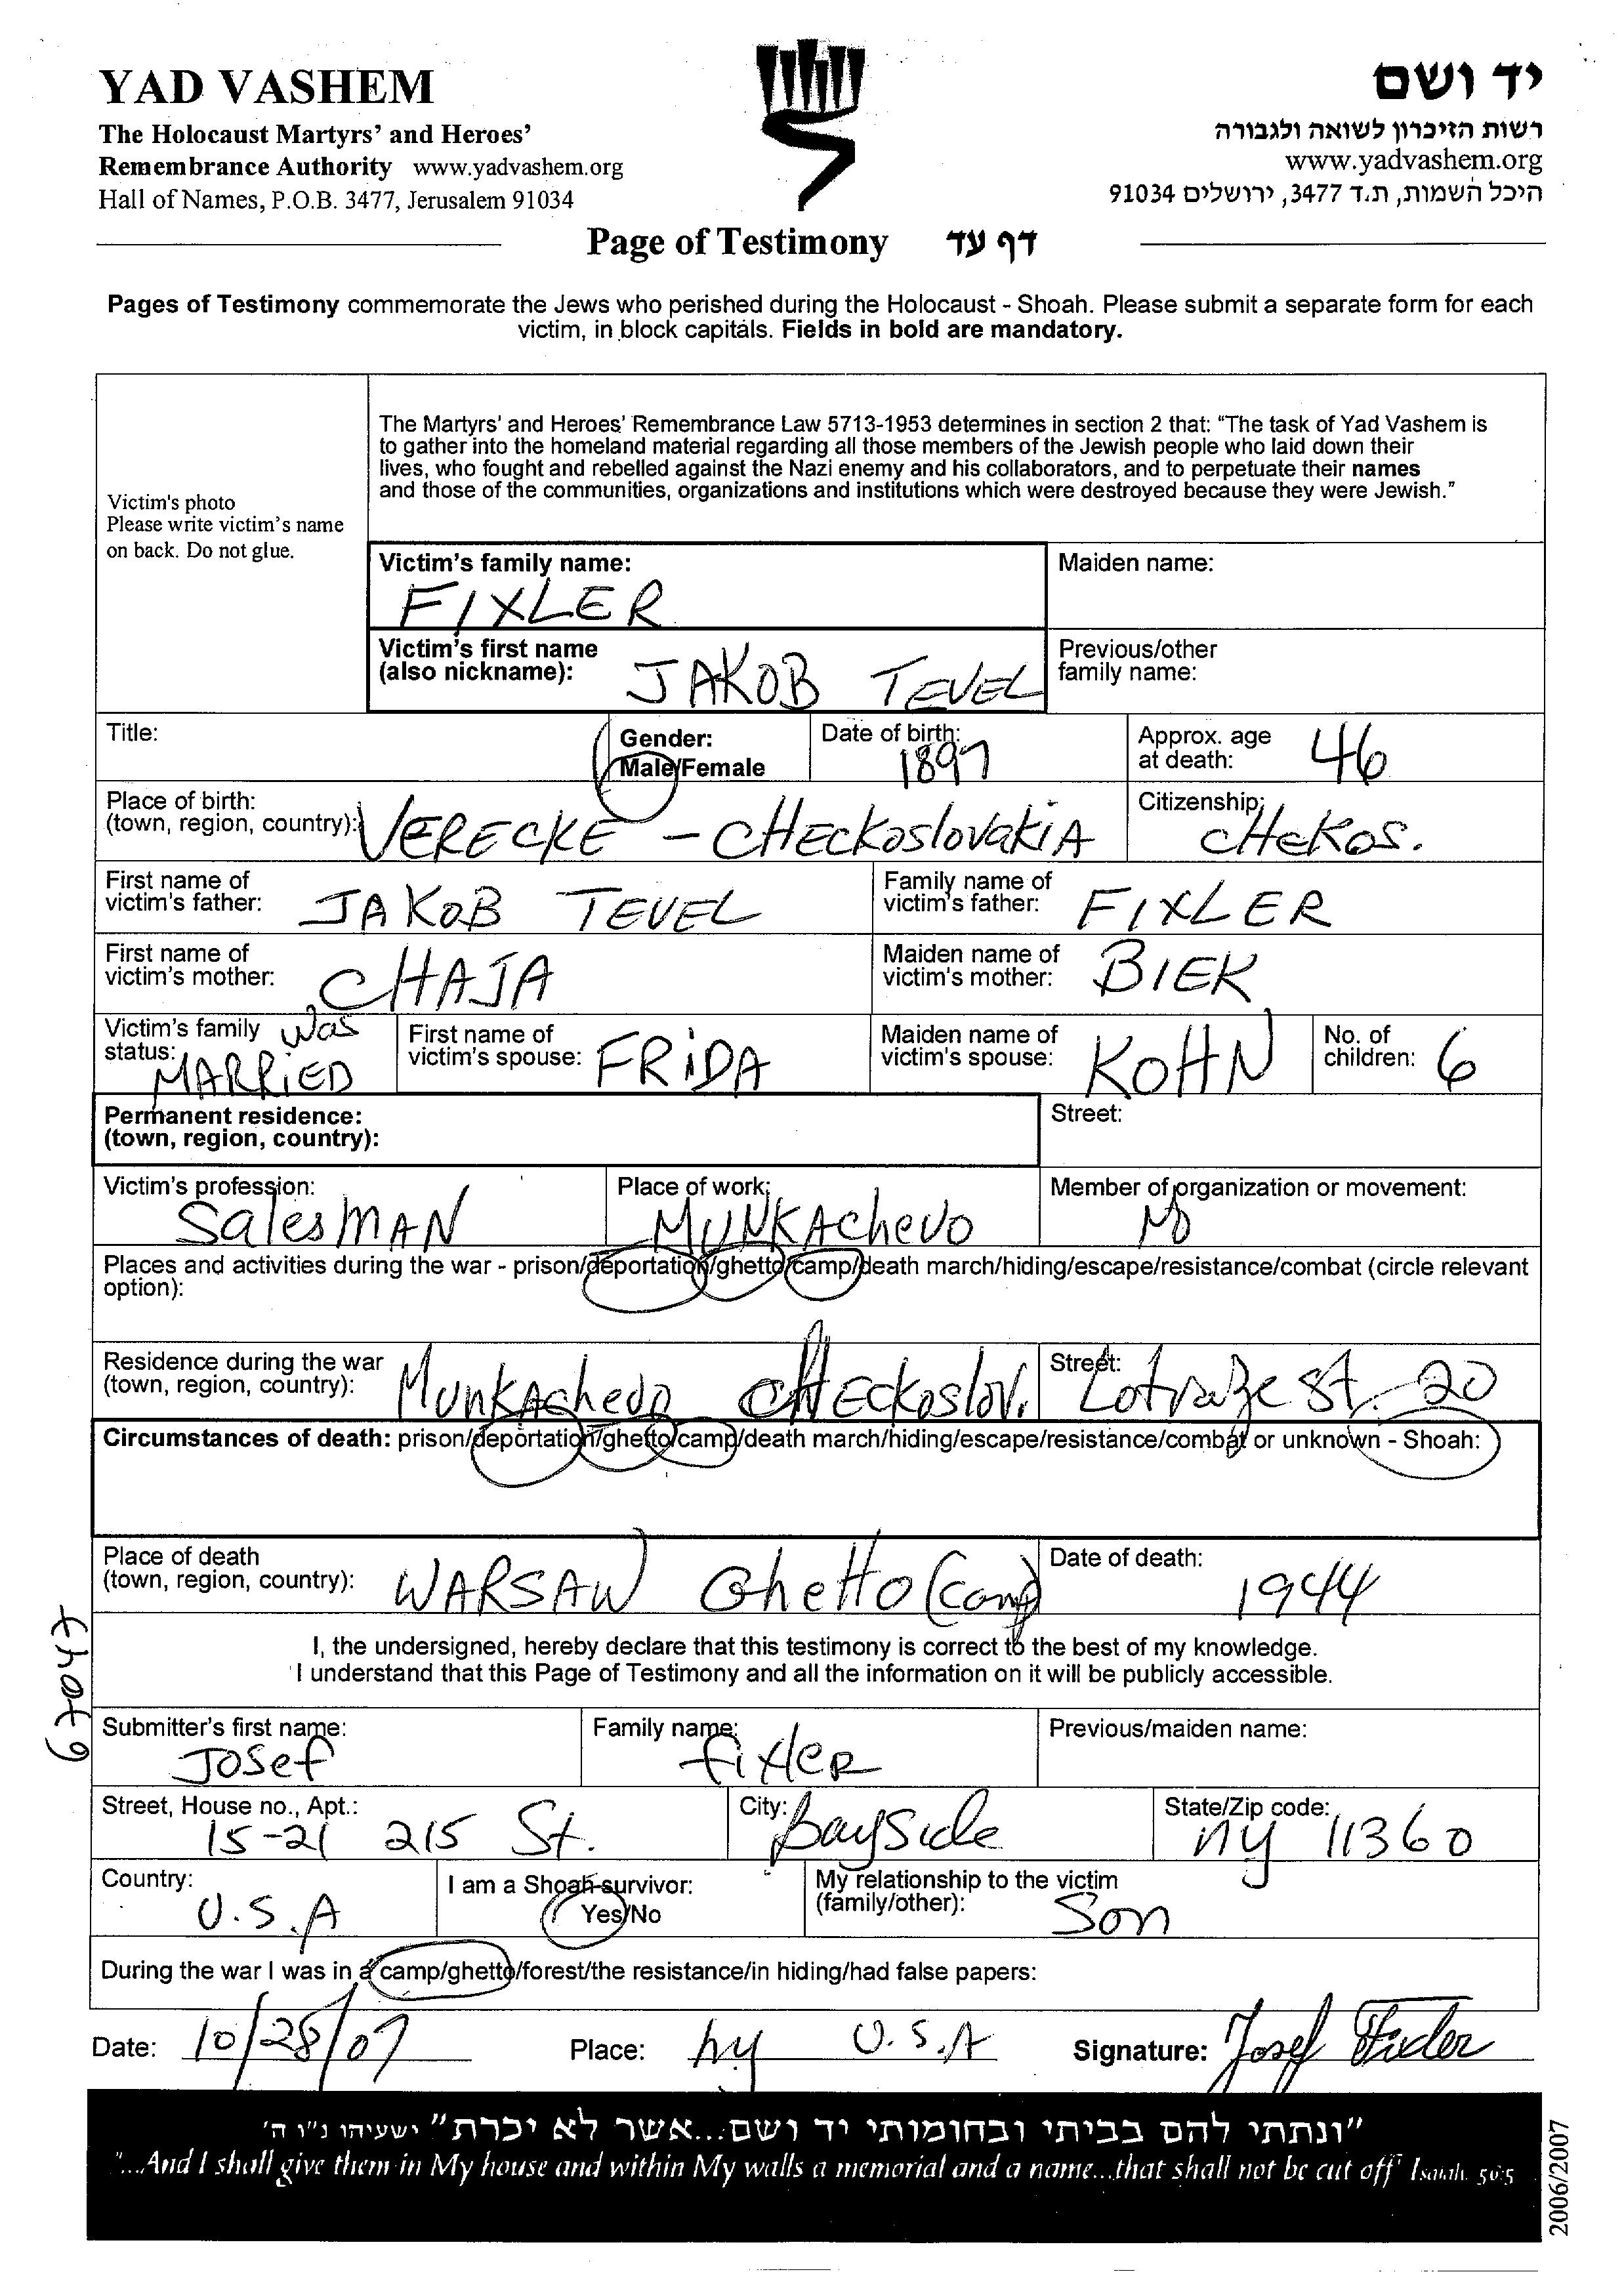 YAD VASHEM
The Holocaust Martyrs' and Heroes'
Remembrance Authority www.yadvashem.org
Hall of Names, P.O.B. 3477, Jerusalem 91034
יד ושם
רשות הזיכרון לשואה ולגבורה
www.yadvashem.org
היכל השמות, ת.ד 3477, ירושלים 91034
Page of Testimony דף עד
Pages of Testimony commemorate the Jews who perished during the Holocaust - Shoah. Please submit a separate form for each
victim, in block capitals. Fields in bold are mandatory.
Victim's photo
Please write victim's name
on back. Do not glue.
The Martyrs' and Heroes' Remembrance Law 5713-1953 determines in section 2 that: "The task of Yad Vashem is
to gather into the homeland material regarding all those members of the Jewish people who laid down their
lives, who fought and rebelled against the Nazi enemy and his collaborators, and to perpetuate their names
and those of the communities, organizations and institutions which were destroyed because they were Jewish."
Victim's family name:
FIXLER
Maiden name:
Victim's first name
(also nickname): JAKOB TEVEL
Previous/other
family name:
Title:
Gender:
Male/Female
Date of birth:
1897
Approx. age
at death: 46
Place of birth:
(town, region, country): VERECKE - CHECKOSLOVAKIA
Citizenship:
CHEKOS.
First name of
victim's father: JAKOB TEVEL
Family name of
victim's father: FIXLER
First name of
victim's mother: CHAJA
Maiden name of
victim's mother: BIEK
Victim's family was
status: MARRIED
First name of
victim's spouse: FRIDA
Maiden name of
victim's spouse: KOHN
No. of
children: 6
Permanent residence:
(town, region, country):
Street:
Victim's profession:
SalesMAN
Place of work:
MUNKAchevo
Member of organization or movement:
No
Places and activities during the war - prison/deportation/ghetto/camp/death march/hiding/escape/resistance/combat (circle relevant
option):
Residence during the war
(town, region, country): MunkAchevo CHEckoslov.
Street: St. 20
Circumstances of death: prison/deportation/ghetto/camp/death march/hiding/escape/resistance/combat or unknown - Shoah:
Place of death
(town, region, country): WARSAW Ghetto (camp)
Date of death:
1944
I, the undersigned, hereby declare that this testimony is correct to the best of my knowledge.
I understand that this Page of Testimony and all the information on it will be publicly accessible.
Submitter's first name:
Josef
Family name:
fixleR
Previous/maiden name:
Street, House no., Apt.:
15-21 215 St.
City: Bayside
State/Zip code:
NY 11360
Country:
U.S.A
I am a Shoah survivor:
Yes/No
My relationship to the victim
(family/other): Son
During the war I was in a camp/ghetto/forest/the resistance/in hiding/had false papers:
Date: 10/28/07
Place: ny U.S.A
Signature: Josef Fixler
"ונתתי להם בביתי ובחומותי יד ושם...אשר לא יכרת" ישעיהו נ"ו ה'
"...And I shall give them in My house and within My walls a memorial and a name...that shall not be cut off" Isaiah. 56:5
2006/2007